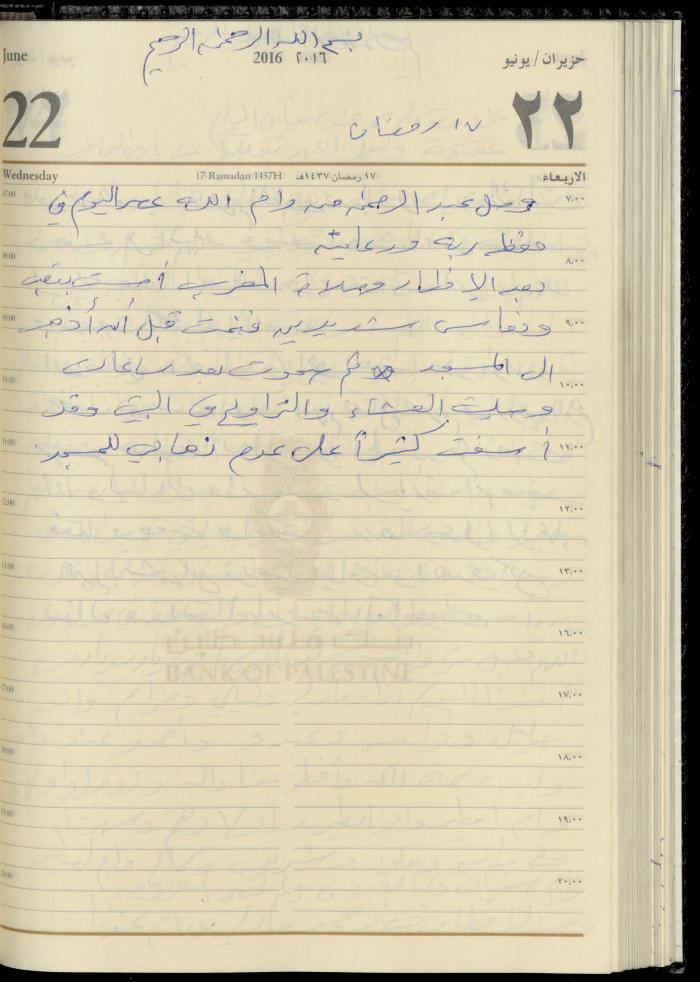 بسم الله الرحمن الرحيم
June 2016 ٢٠١٦ حزيران / يونيو
22 ١٧ رمضان ٢٢
Wednesday 17 Ramadan 1437H ١٧ رمضان ١٤٣٧هـ الاربعاء
07:00 وصل عبد الرحمن من رام الله عصر اليوم في ٧,٠٠
حفظ ربه ورعايته
08:00 ٨,٠٠
بعد الإفطار وصلاة المغرب أحسست بتعب
09:00 ونعاس شديدين فنمت قبل أن أذهب ٩,٠٠
الى المسجد ثم صحوت بعد ساعات
10:00 ١٠,٠٠
وصليت العشاء والتراويح في البيت وقد
11:00 أسفت كثيراً على عدم ذهابي للمسجد ١١,٠٠
12:00 ١٢,٠٠
13:00 ١٣,٠٠
16:00 ١٦,٠٠
بنك فلسطين
BANK OF PALESTINE
17:00 ١٧,٠٠
18:00 ١٨,٠٠
19:00 ١٩,٠٠
20:00 ٢٠,٠٠